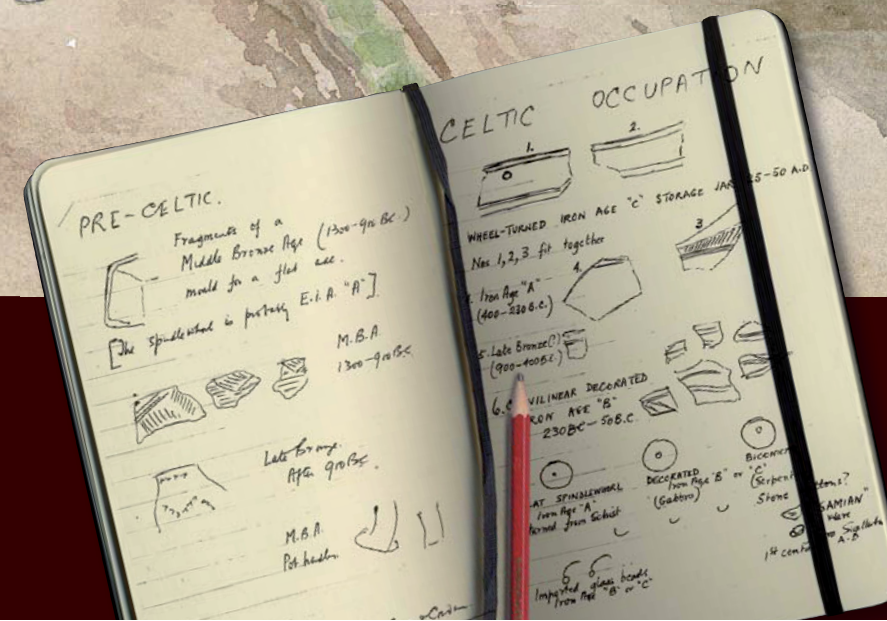 PRE-CELTIC.
Fragments of a
Middle Bronze Age (1300-900 BC.)
mould for a flat axe.
[The spindlewhorl is probably E.I.A. "A"]
M.B.A.
1300-900 BC.
Late Bronze.
After 900 BC.
M.B.A.
Pot handles
CELTIC OCCUPATION
1. 2.
WHEEL-TURNED IRON AGE "C" STORAGE JAR 25-50 A.D
Nos 1, 2, 3 fit together
3
4.
Iron Age "A"
(400-230 B.C.)
5. Late Bronze (?)
(900-400 B.C.)
6. VILINEAR DECORATED
RON AGE "B"
230 BC - 50 B.C.
AT SPINDLEWHORL
Iron Age "A"
turned from Schist
DECORATED
Iron Age "B" or "C"
(Gabbro)
BICONI
(Serpent
Stone
tons?
SAMIAN"
Ware
1st cent
A-D
Imported glass beads
Iron Age "B" or "C"